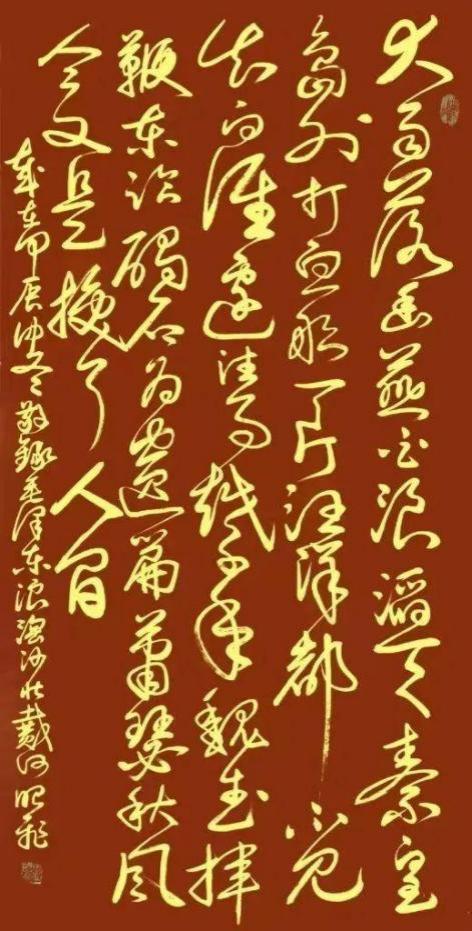 大雨落幽燕白浪滔天秦皇
岛外打鱼船一片汪洋都不见
知向谁边往事越千年魏武挥
鞭东临碣石有遗篇萧瑟秋风
今又是换了人间
岁在甲辰仲冬敬录毛泽东浪淘沙北戴河明飞